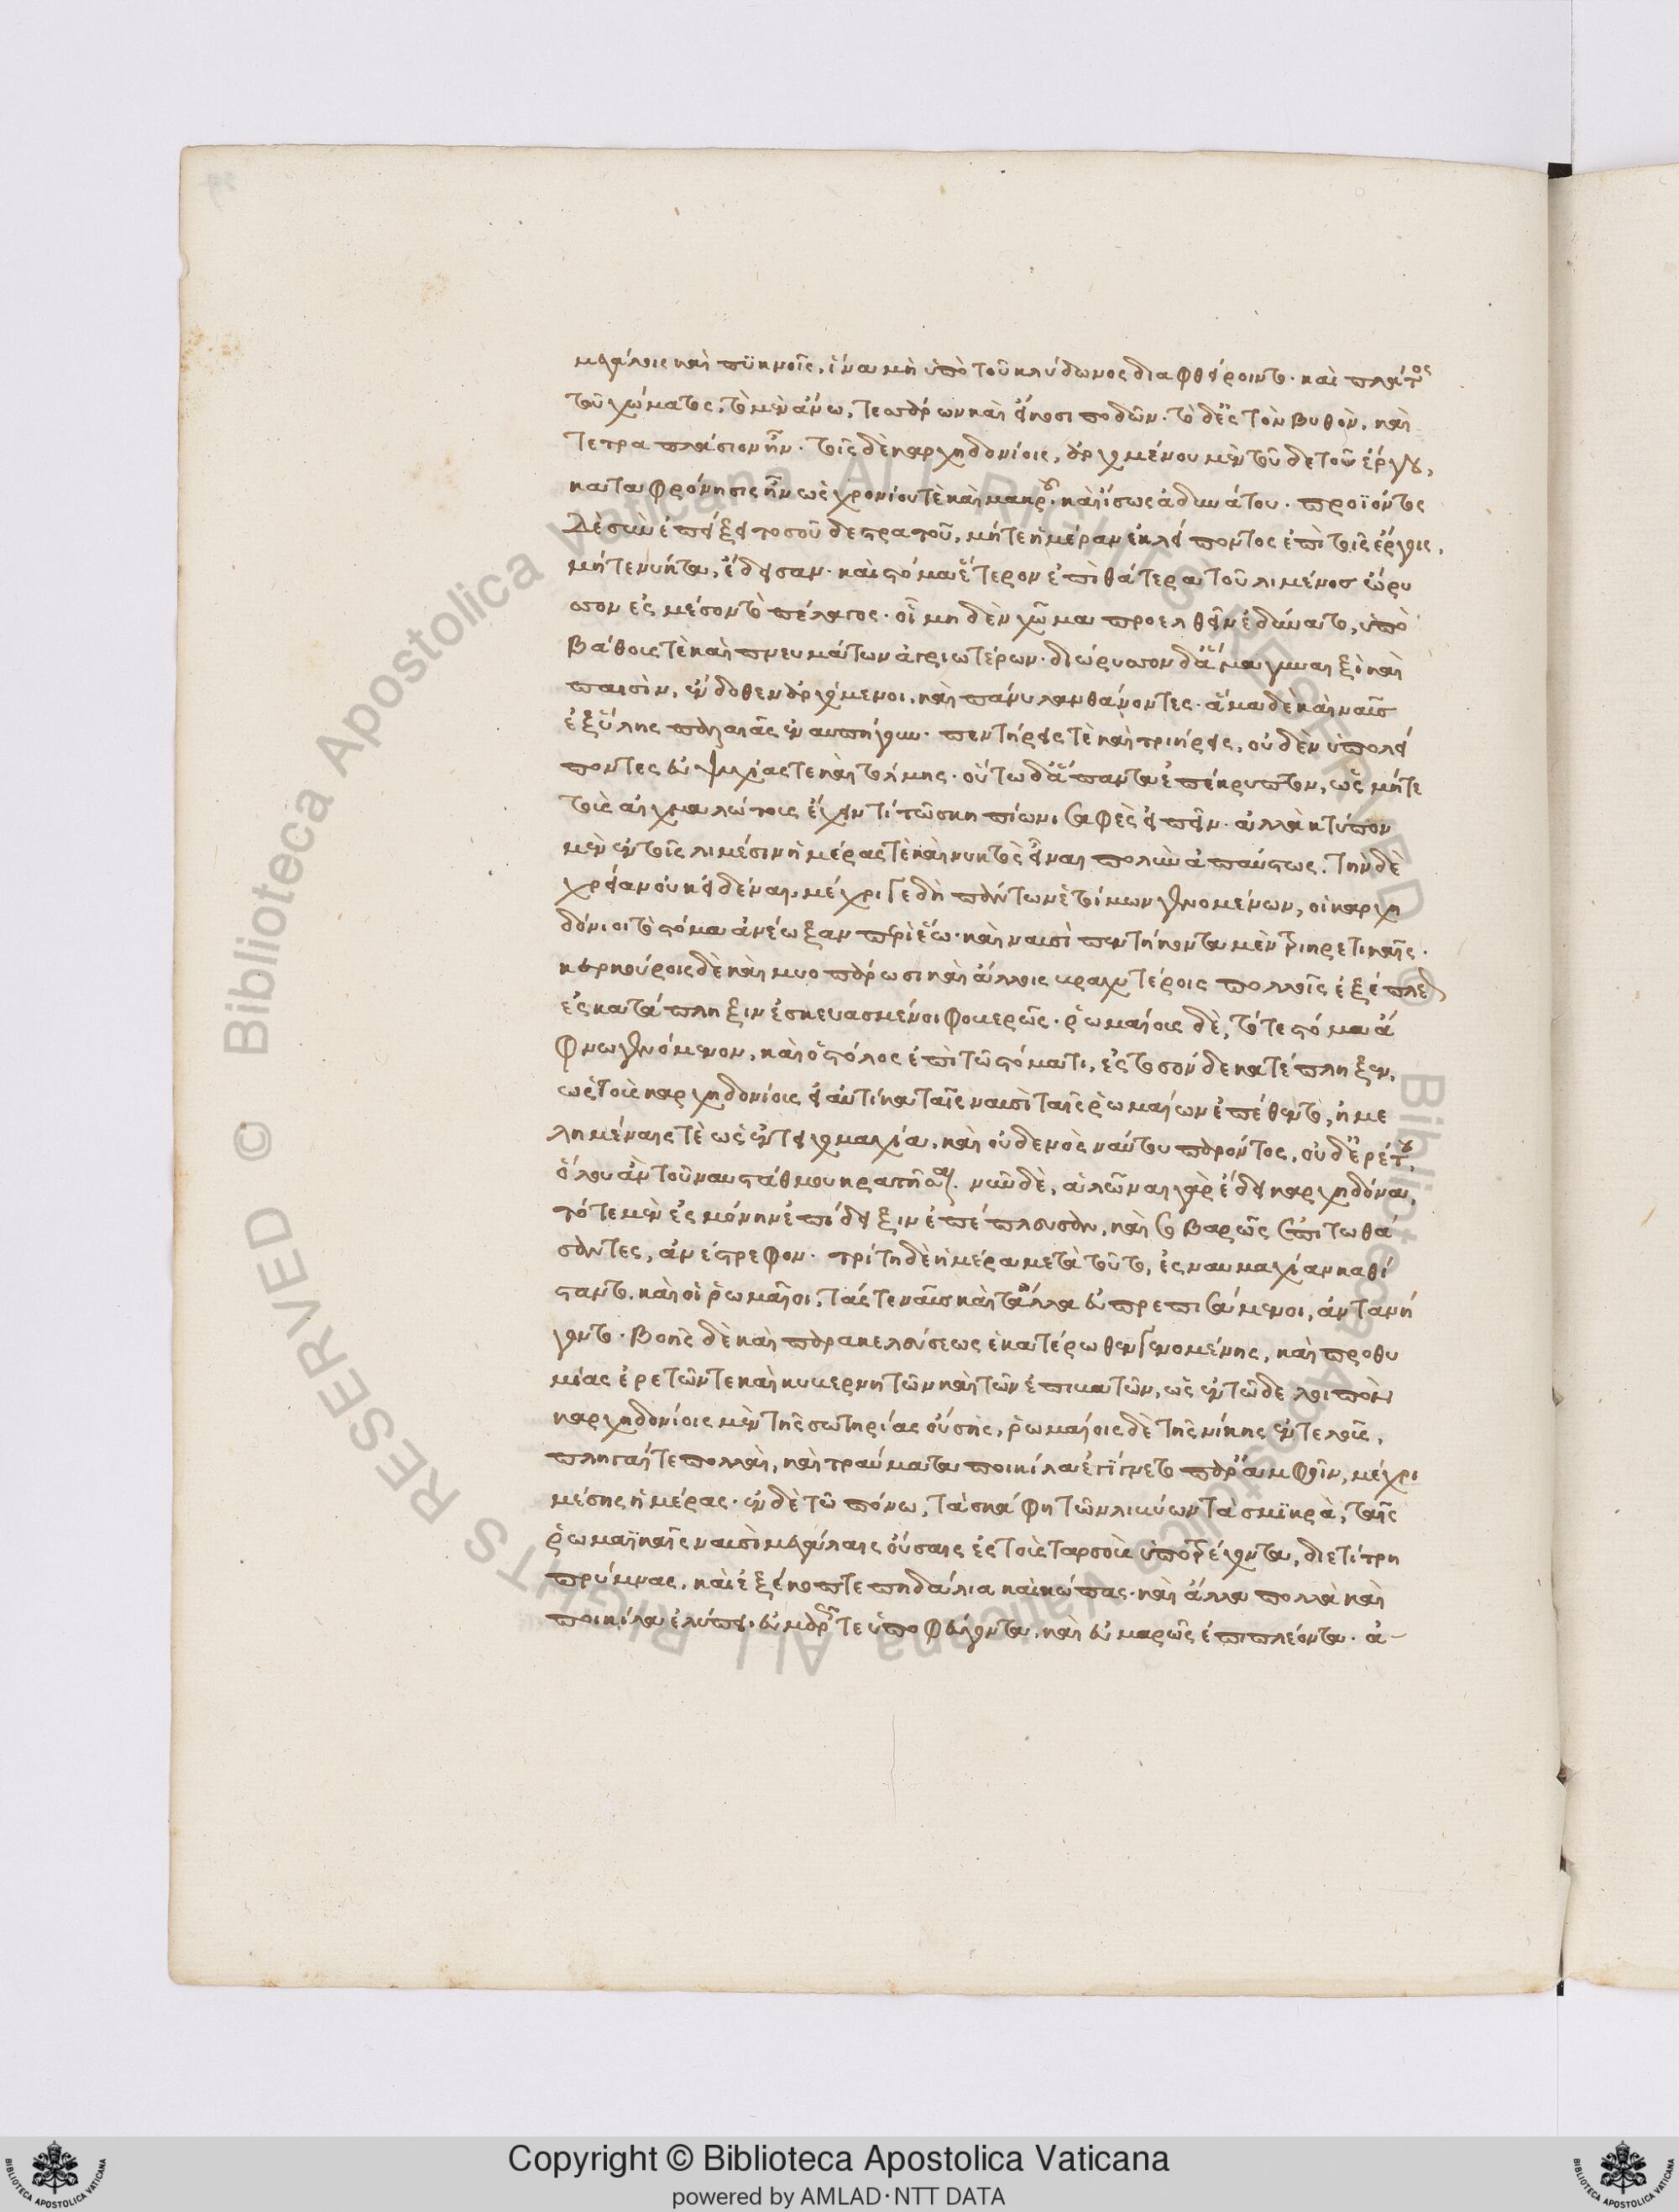 μεγάλοις καὶ πϋκνοῖς, ἵνα μὴ ὑπὸ τοῦ κλύδωνος διαφθείροιντο. καὶ πλάτος
τοῦ χώματος, τὸ μὲν ἄνω, τεσσάρων καὶ εἴκοσι ποδῶν. τὸ δ' ἐς τὸν βυθὸν, καὶ
τετραπλάσιον ἦν. τοῖς δὲ καρχηδονίοις, ἀρχομένου μὲν τοῦδε τοῦ ἔργου,
καταφρόνησις ἦν ὡς χρονίου τὲ καὶ μακροῦ. καὶ ἴσως ἀδυνάτου. προϊόντος
δὲ σὺν ἐπείξει τοσοῦδε στρατοῦ, μήτε ἡμέραν ἐκλείποντος ἐπὶ τοῖς ἔργοις,
μήτε νύκτα, ἔδεισαν. καὶ στόμα ἕτερον ἐπὶ θάτερα τοῦ λιμένοσ ὤρυ
σσον ἐς μέσον τὸ πέλαγος. οἷ μηδὲν χῶμα προελθεῖν ἐδύνατο, ὑπὸ
βάθους τὲ καὶ πνευμάτων ἀγριωτέρων. διώρυσσον δ' ἅμα γυναιξὶ καὶ
παισὶν, ἔνδοθεν ἀρχόμενοι, καὶ πάνυ λανθάνοντες. ἅμα δὲ καὶ ναῦσ
ἐξ ὕλης παλαιᾶς ἐναυπήγουν. πεντήρεις τὲ καὶ τριήρεις, οὐδὲν ὑπολεί
ποντες εὐψυχίας τε καὶ τόλμης. οὕτω δ' ἅπαντα ἐπέκρυπτον, ὡς μήτε
τοὺς αἰχμαλώτους ἔχειν τί τῶ σκηπίωνι σαφὲς εἰπεῖν. ἀλλὰ κτύπον
μὲν ἐν τοῖς λιμέσιν ἡμέρας τὲ καὶ νυκτὸς εἶναι πολὺν ἀπαύστως. τὴν δὲ
χρείαν οὐκ εἰδέναι. μέχρι γε δὴ πάντων ἑτοίμων γενομένων, οἱ καρχη
δόνιοι τὸ στόμα ἀνέωξαν περὶ ἕω. καὶ ναυσὶ πεντήκοντα μὲν τριηρετικαῖς.
κερκούροις δὲ καὶ μυοπάρωσι καὶ ἄλλοις βραχυτέροις πολλοῖς ἐξέπλεον
ἐς κατάπληξιν ἐσκευασμένοι φοβερῶς. ῥωμαίους δὲ, τό τε στόμα ἄ
φνω γενόμενον, καὶ ὁ στόλος ἐπὶ τῶ στόματι, ἐς τοσόνδε κατέπληξεν,
ὡς τοὺς καρχηδονίους εἰ αὐτίκα ταῖς ναυσὶ ταῖς ῥωμαίων ἐπέθεντο, ἠμε
λημέναις τὲ ὡς ἐν τειχομαχία, καὶ οὐδενὸς ναύτου παρόντος, οὐδ' ἐρέτου,
ὅλου ἂν τοῦ ναυστάθμου κρατῆσαι. νῦν δὲ, ἁλῶναι γὰρ ἔδει καρχηδόνα,
τότε μὲν ἐς μόνην ἐπίδειξιν ἐπέπλευσαν, καὶ σοβαρῶς ἐπιτωθά
σαντες, ἀνέστρεφον. τρίτη δὲ ἡμέρα μετὰ τοῦτο, ἐς ναυμαχίαν καθί
σταντο. καὶ οἱ ῥωμαῖοι, τάς τε ναῦσ καὶ τἄλλα εὐτρεπισάμενοι, ἀντανή
γοντο. βοῆς δὲ καὶ παρακελεύσεως ἑκατέρωθεν γενομένης, καὶ προθυ
μίας ἐρετῶν τε καὶ κυβερνητῶν καὶ τῶν ἐπιβατῶν, ὡς ἐν τῶδε λοιπὸν
καρχηδονίοις μὲν τῆς σωτηρίας οὔσης, ῥωμαίοις δὲ τῆς νίκης ἐντελοῦς,
πληγαί τε πολλαὶ, καὶ τραύματα ποικίλα ἐγίγνετο παρ' ἀμφοῖν, μέχρι
μέσης ἡμέρας. ἐν δὲ τῶ πόνω, τὰ σκάφη τῶν λιβύων τὰ σμϊκρὰ, ταῖς
ῥωμαϊκαῖς ναυσὶ μεγάλαις οὔσαις ἐς τοὺς ταρσοὺς ὑποτρέχοντα, διετίτρη
πρύμνας, καὶ ἐξέκοπτε πηδάλια καὶ κώπας. καὶ ἄλλα πολλὰ καὶ
ποικίλα ἐλύπει. εὐμαρῶς τε ὑποφεύγοντα, καὶ εὐμαρῶς ἐπιπλέοντα. ἀ-
Copyright © Biblioteca Apostolica Vaticana
powered by AMLAD·NTT DATA